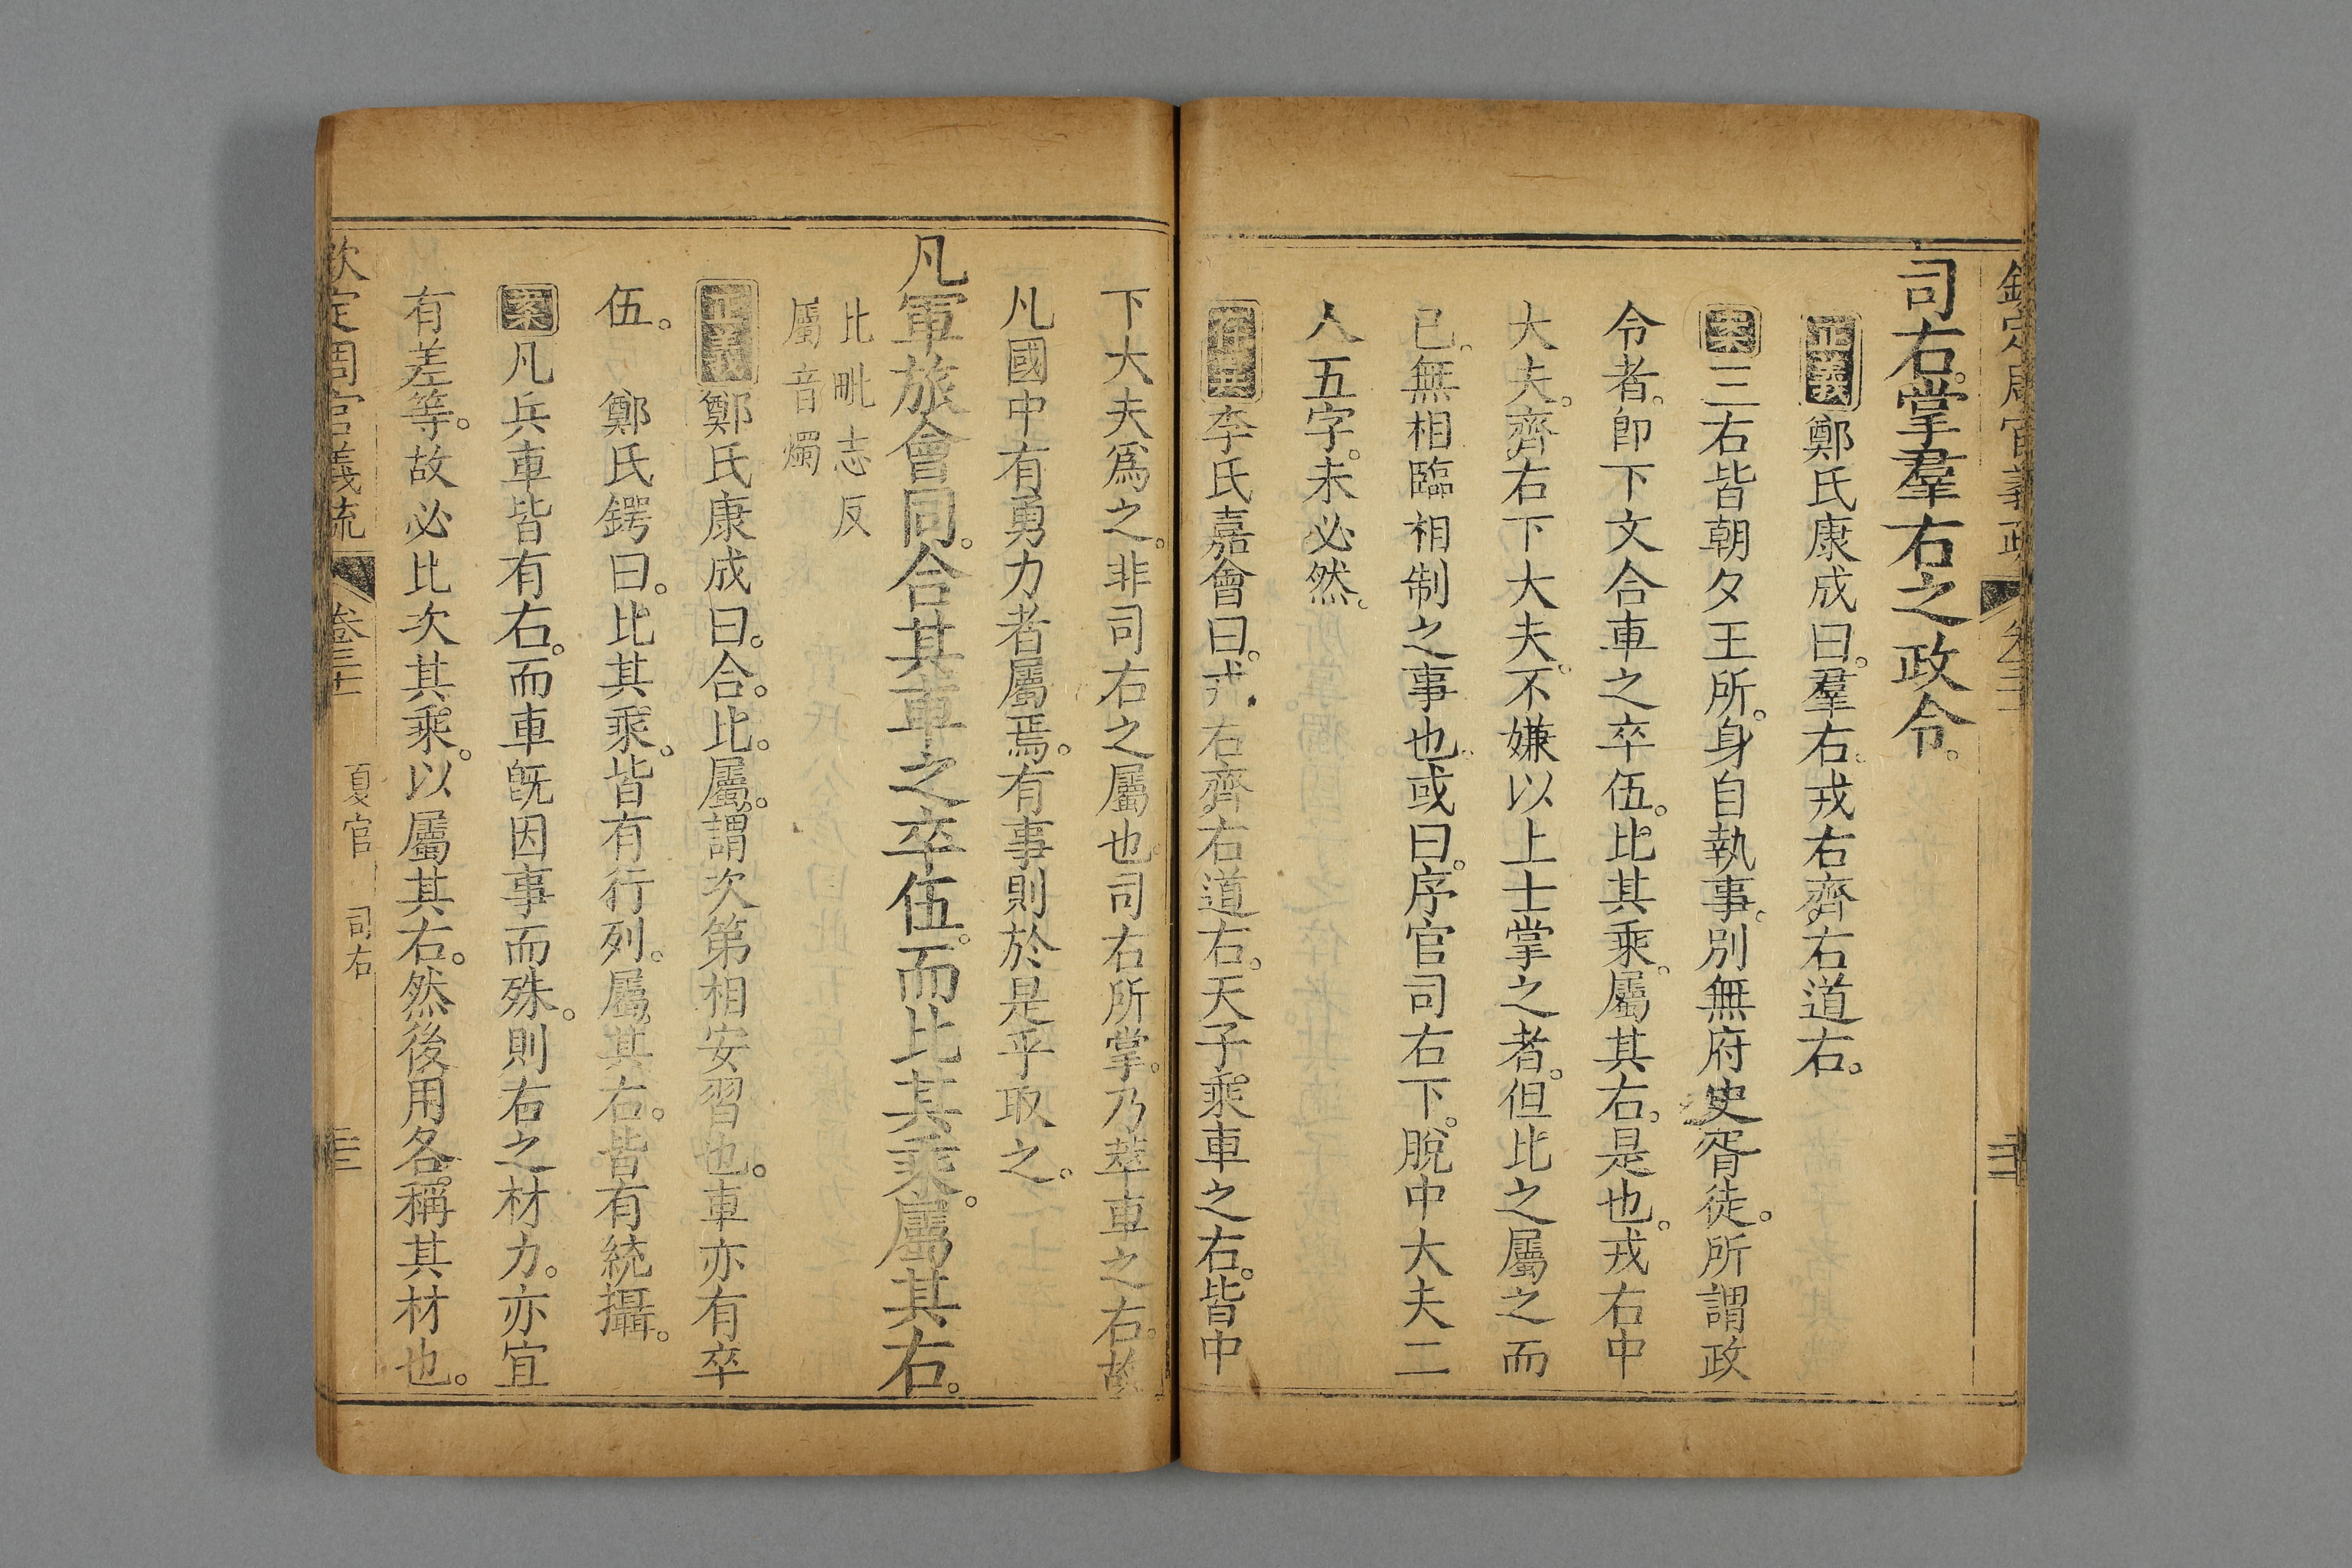 司右。掌羣右之政令。
正義鄭氏康成曰。羣右。戎右齊右道右。
案三右皆朝夕王所。身自執事。別無府史胥徒。所謂政
令者。卽下文合車之卒伍。比其乘。屬其右。是也。戎右中
大夫。齊右下大夫。不嫌以上士掌之者。但比之屬之而
已。無相臨相制之事也。或曰。序官司右下。脫中大夫二
人五字。未必然。
存異李氏嘉會曰。戎右齊右道右。天子乘車之右。皆中
下大夫爲之。非司右之屬也。司右所掌。乃萃車之右。故
凡國中有勇力者屬焉。有事則於是乎取之。
凡軍旅會同。合其車之卒伍。而比其乘。屬其右。
比毗志反
屬音燭
正義鄭氏康成曰。合。比。屬。謂次第相安習也。車亦有卒
伍。 鄭氏鍔曰。比其乘。皆有行列。屬其右。皆有統攝。
案凡兵車皆有右。而車旣因事而殊。則右之材力。亦宜
有差等。故必比次其乘。以屬其右。然後用各稱其材也。
欽定周官義疏 卷三十一 夏官 司右